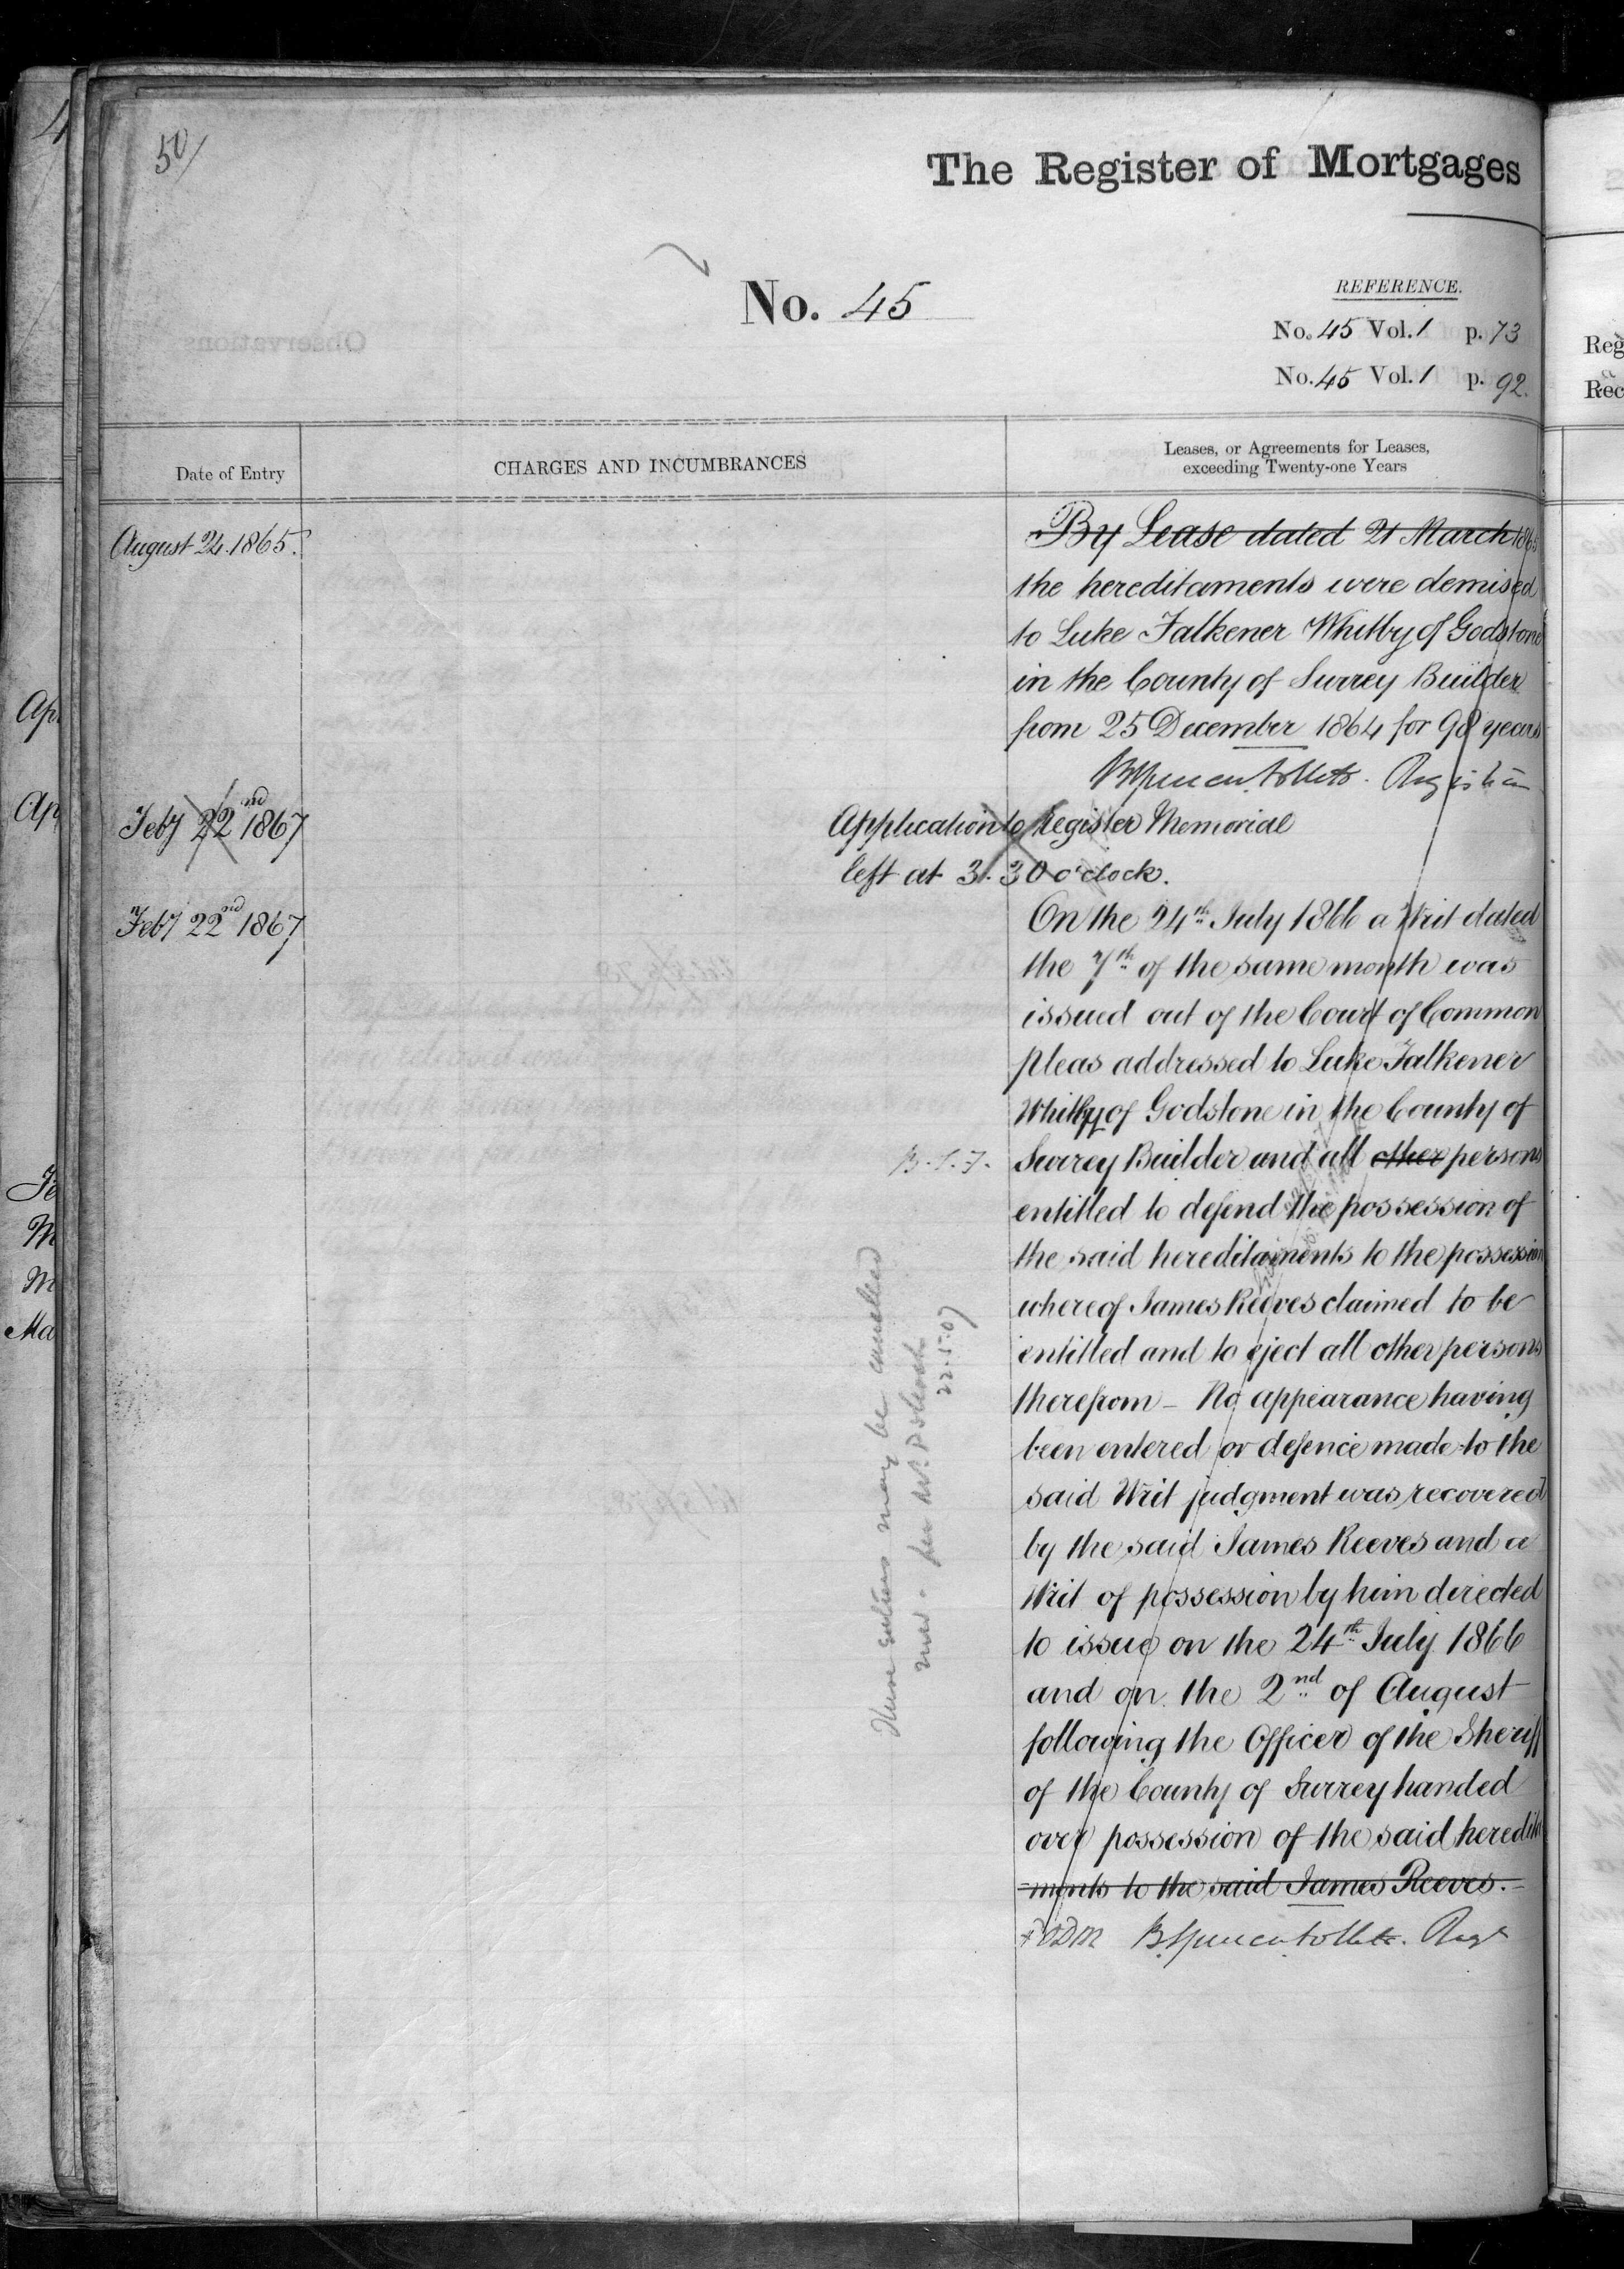 50
The Register of Mortgages
No. 45
REFERENCE.
No. 45 Vol. 1 p. 73
No. 45 Vol. 1 p. 92.
Date of Entry
CHARGES AND INCUMBRANCES
Leases, or Agreements for Leases,
exceeding Twenty-one Years
August 24. 1865.
By Lease dated 21 March 1865
the hereditaments were demised
to Luke Falkener Whitby of Godstone
in the County of Surrey Builder
from 25 December 1864 for 98 years
Registrar
Feby 22nd 1867
Application to Register Memorial
left at 3.30 o'clock.
Feby 22nd 1867
On the 24th July 1866 a Writ dated
the 7th of the same month was
issued out of the Court of Common
pleas addressed to Luke Falkener
Whitby of Godstone in the County of
B.S.F. Surrey Builder and all other persons
entitled to defend the possession of
the said hereditaments to the possession
whereof James Reeves claimed to be
entitled and to eject all other persons
therefrom – No appearance having
been entered or defence made to the
said Writ judgment was recovered
by the said James Reeves and a
Writ of possession by him directed
to issue on the 24th July 1866
and on the 2nd of August
following the Officer of the Sheriff
of the County of Surrey handed
over possession of the said heredita
=ments to the said James Reeves.–
Regr
These entries may be cancelled
per Mr
22.5.07
Observations
Reg
Rec
Ap
Ap
Fe
M
M
Ma